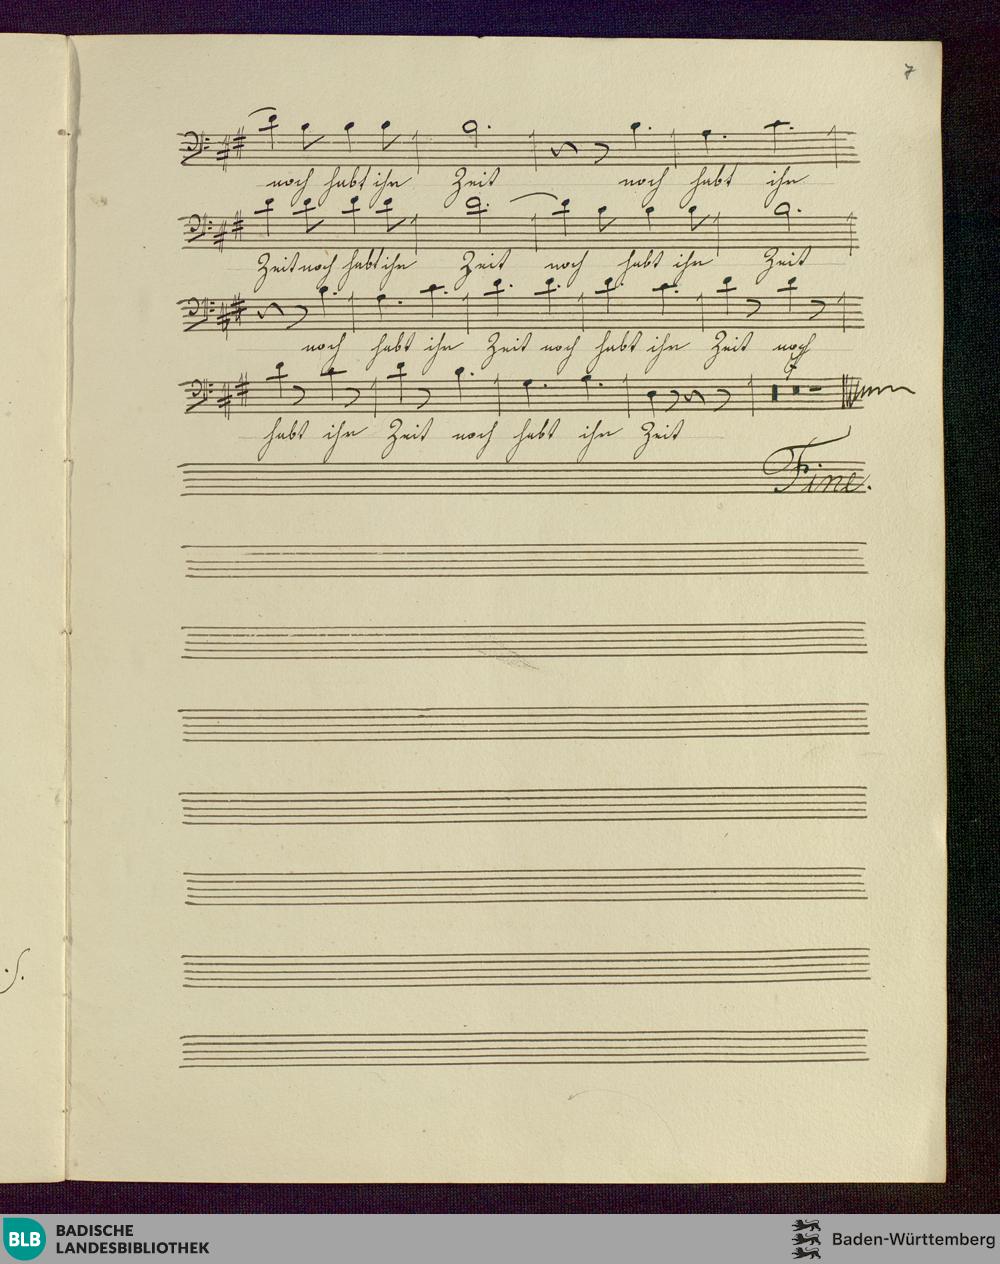 7
noch habt ihr Zeit noch habt ihr
Zeit noch habt ihr Zeit noch habt ihr Zeit
noch habt ihr Zeit noch habt ihr Zeit noch
habt ihr Zeit noch habt ihr Zeit
Fine.
BLB BADISCHE
LANDESBIBLIOTHEK
Baden-Württemberg